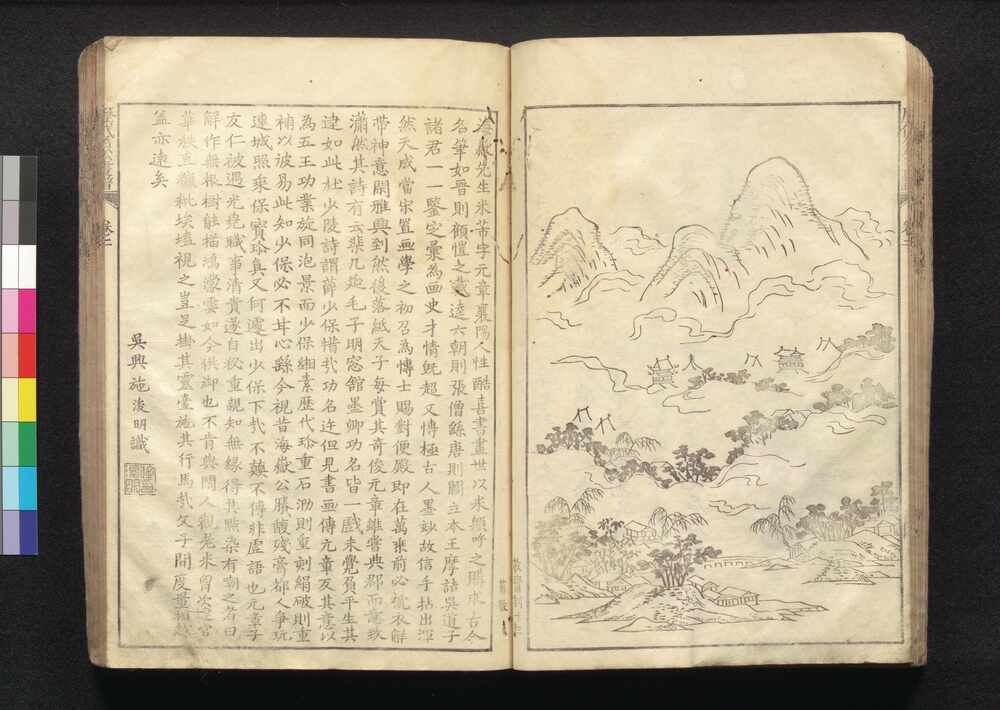 先生米芾字元章襄陽人性酷喜書畫世以米顛呼之購求古今
名筆如晉則顧愷之戴逵六朝則張僧繇唐則閻立本王摩詰吳道子
諸君一一鑒定彙為畫史才情旣超又博極古人墨妙故信手拈出渾
然天成當宋置畫學之初召為博士賜對便殿即在萬乘前必褫衣解
帶神意閑雅興到然後落紙天子每賞其奇俊元章雖嘗典郡而意致
瀟然其詩有云棐几延毛子明窓館墨卿功名皆一戲未覺負平生其
達如此杜少陵詩謂薛少保惜哉功名迕但見書畫傳元章反其意以
為五王功業旋同泡景而少保緗素歷代珍重石泐則重刻絹破則重
補以彼易此知少保必不甘心繇今視昔海嶽公賸馥殘膏都人爭玩
連城照乘保寶珍真又何遽出少保下哉不不傳非虛語也元章子
友仁被遇光堯職事清貴遂自秘重親知無緣得其點染有嘲之者曰
解作無根樹能描鴻濛雲如今供御也不肯與閑人觀老米胷次官
華秩直糠粃埃壒視之豈足掛其靈臺施其行馬哉父子間度量相越
蓋亦遠矣
吳興施浚明識